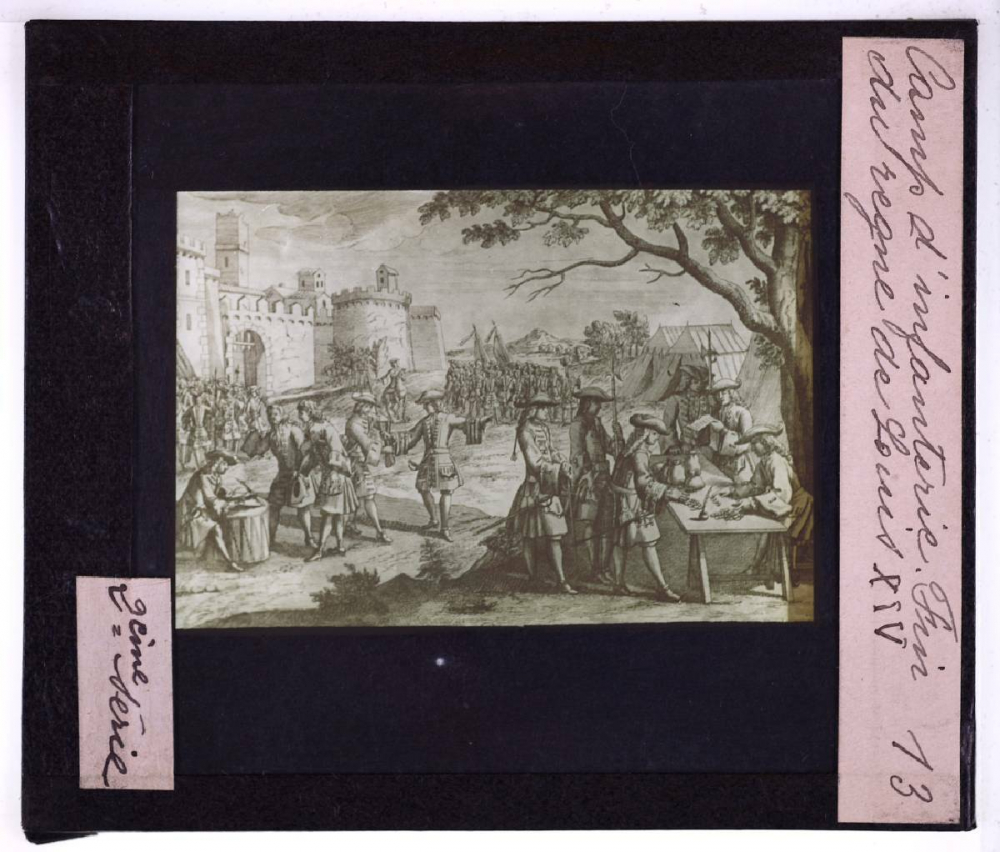 Camp d'infanterie. Fin
du regne de Louis XIV
13
2ème Série